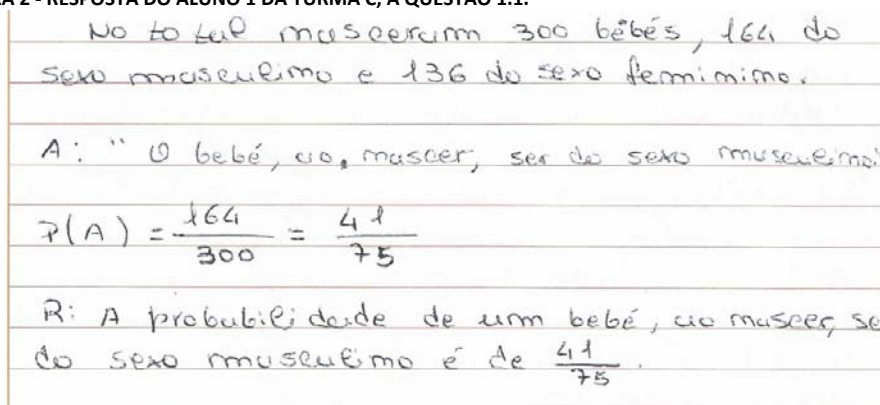 A 2 - RESPOSTA DO ALUNO 1 DA TURMA C, À QUESTÃO 1.1.
No total nasceram 300 bebés, 164 do
sexo masculino e 136 do sexo feminino.
A: " O bebé, ao, nascer, ser do sexo masculino"
P(A) = 164/300 = 41/75
R: A probabilidade de um bebé, ao nascer, se
do sexo masculino é de 41/75.